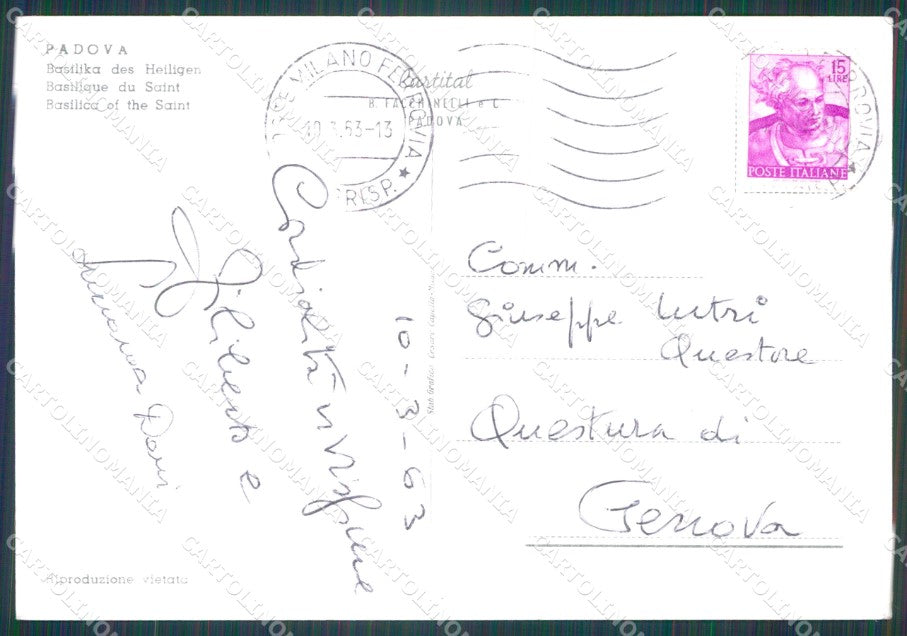 PADOVA
Basilika des Heiligen
Basilique du Saint
Basilica of the Saint
MILANO FERROVIA
CORRISP.
63-13
Cartital
PADOVA
15
LIRE
POSTE ITALIANE
10-3-63
Cordialità
Giliberto e
Comm.
Giuseppe Lutri
Questore
Questura di
Genova
Riproduzione vietata
CARTOLINOMANIA